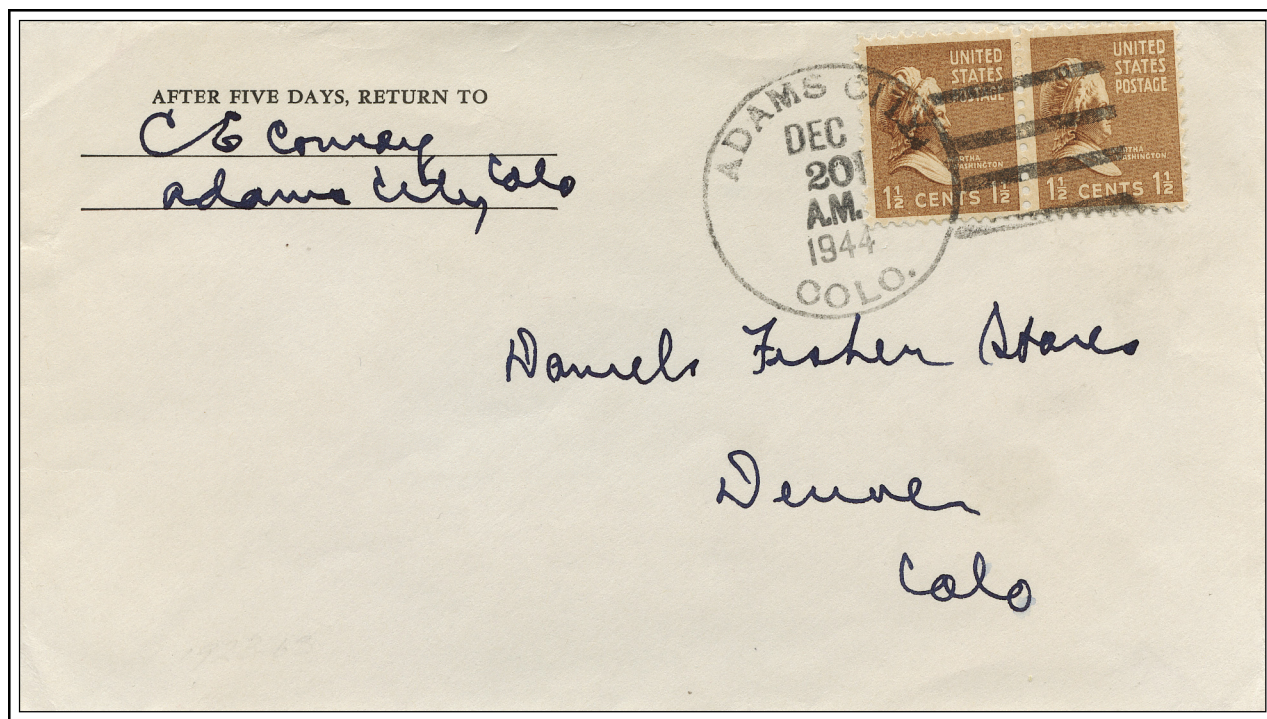 AFTER FIVE DAYS, RETURN TO
C E Conway
Adams City Colo
ADAMS CITY
DEC
20
A.M.
1944
COLO.
UNITED
STATES
POSTAGE
MARTHA
WASHINGTON
1½ CENTS 1½
UNITED
STATES
POSTAGE
MARTHA
WASHINGTON
1½ CENTS 1½
Daniels Fisher Stores
Denver
Colo